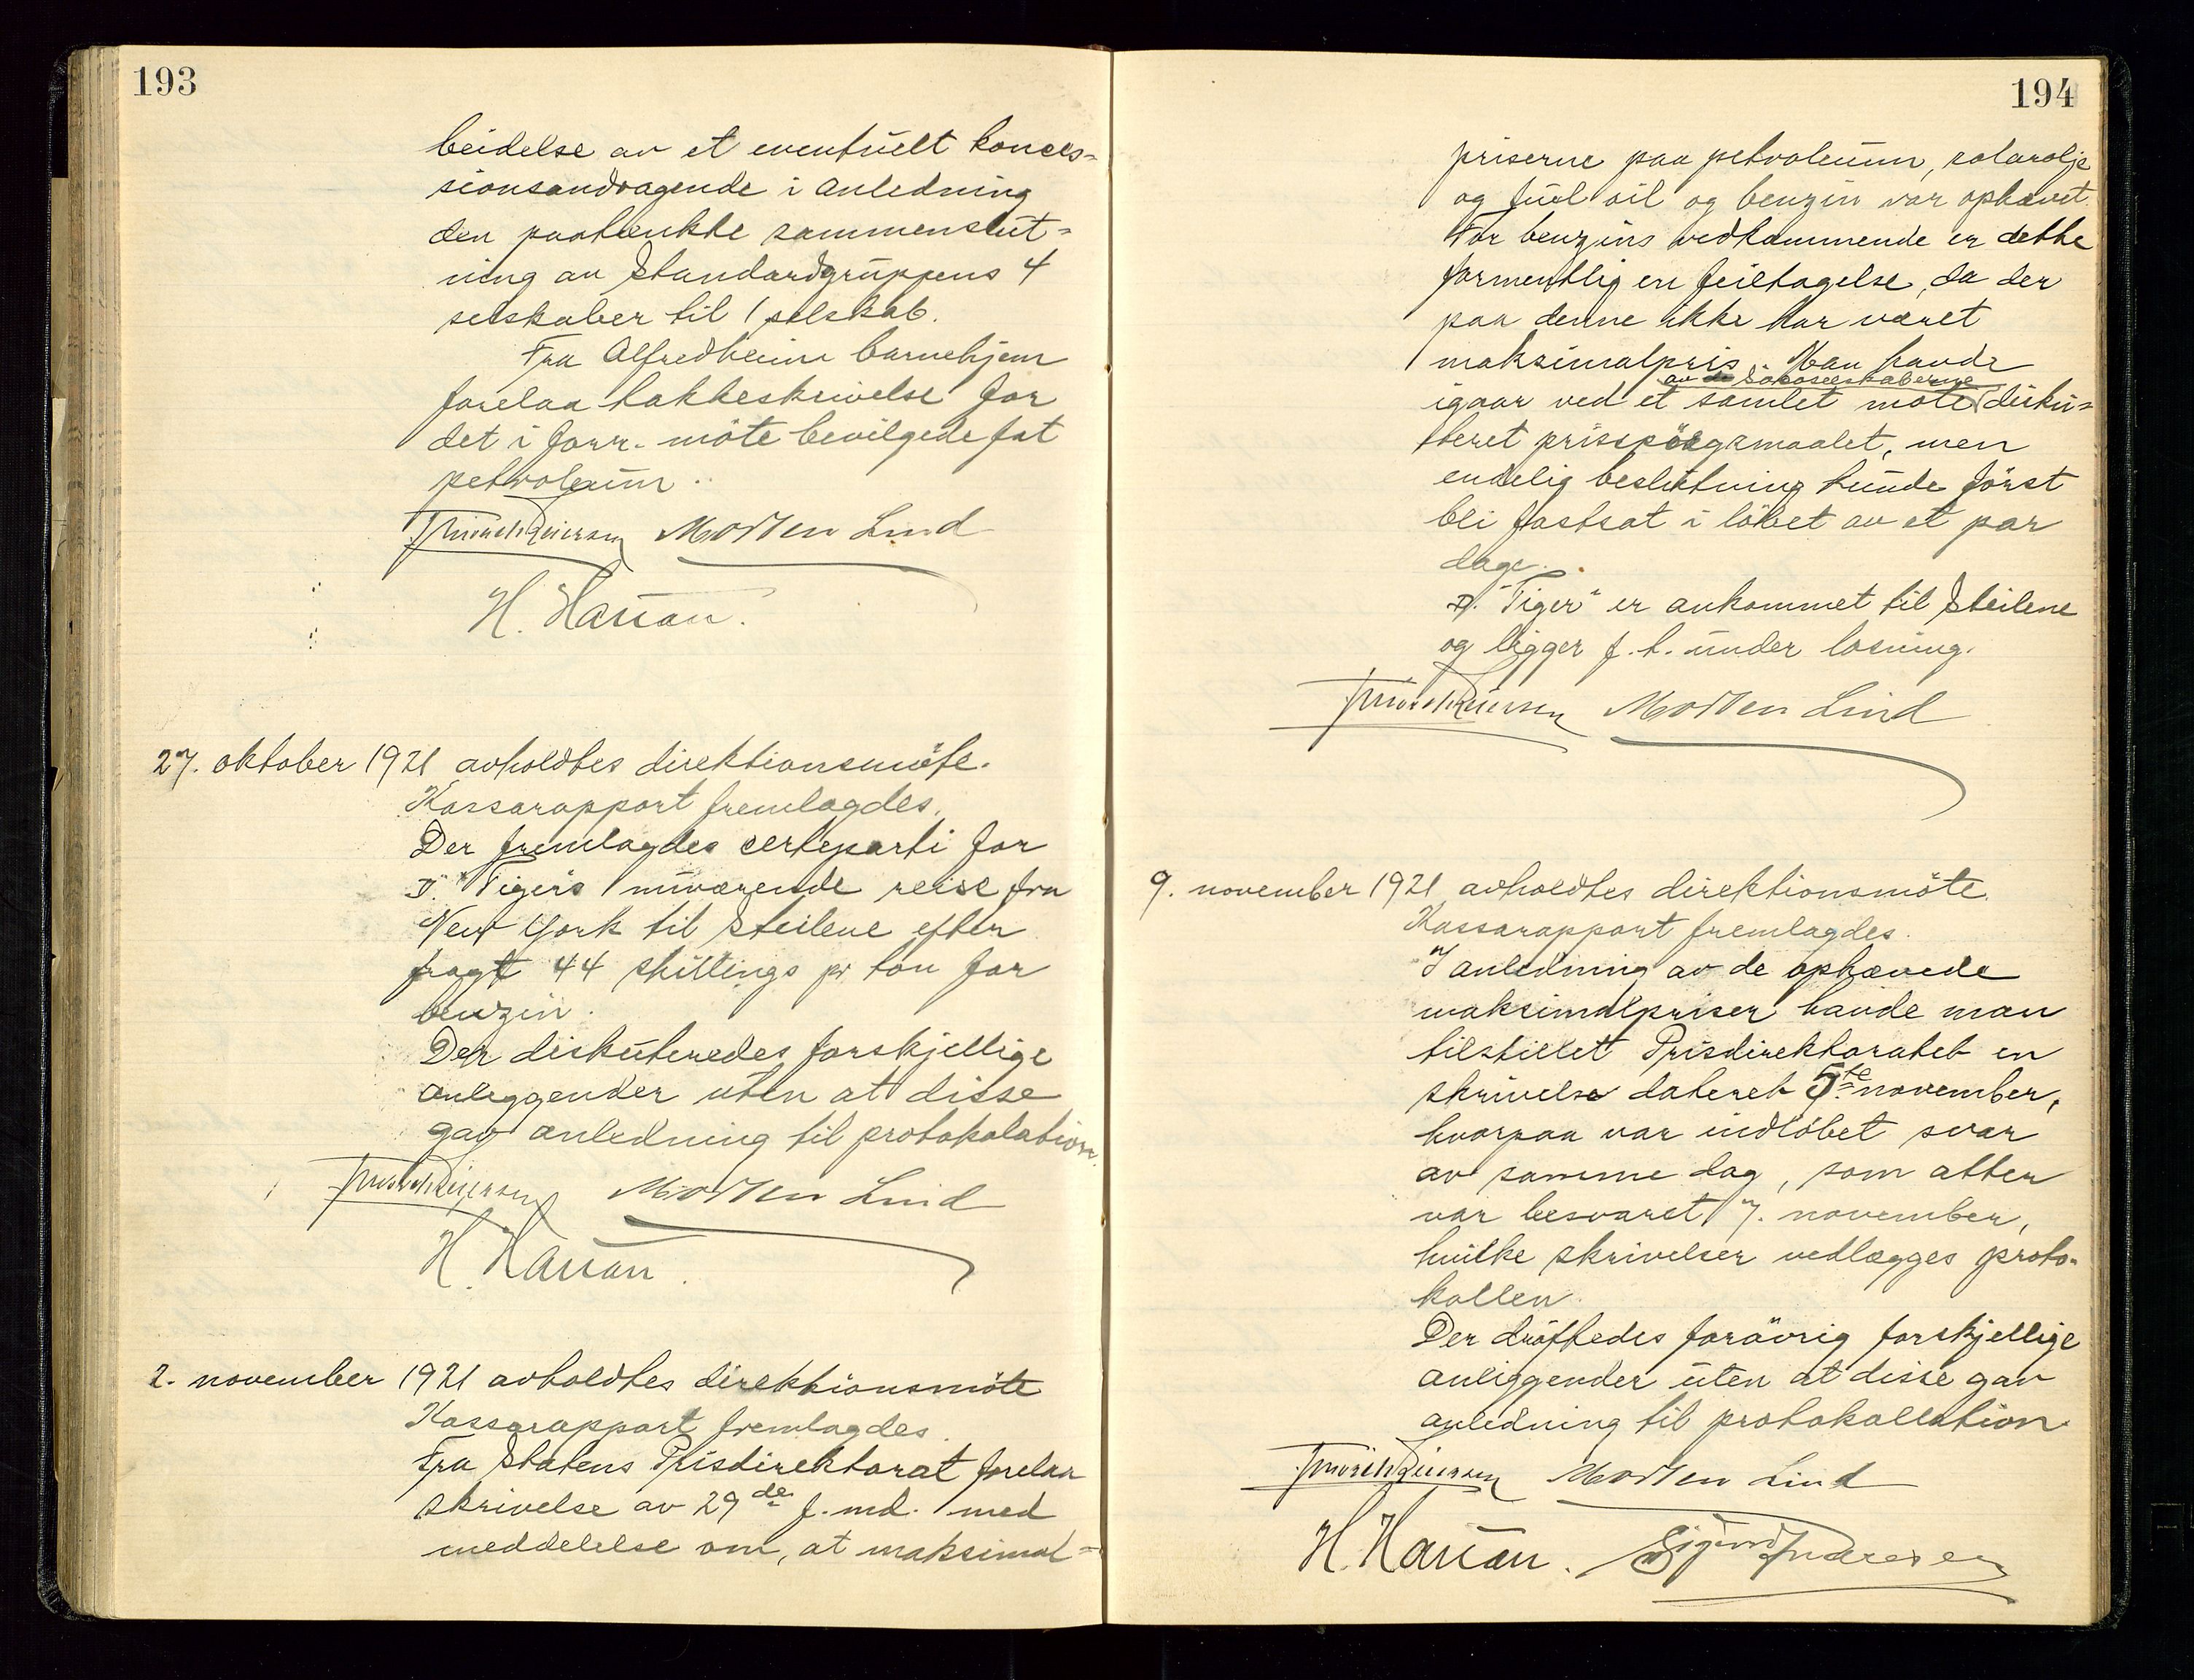 193
beidelse av et eventuelt konces-
sionsandragende i anledning
den paatænkte sammenslut-
ning av Standardgruppens 4
selskaber til 1 selskab.
Fra Alfredheim barnehjem
forelaa takkeskrivelse for
det i forr. möte bevilgede fat
petroleum.
Morten Lind
H. Harran.
27. oktober 1921 avholdtes direktionsmöte.
Kassarapport fremlagdes.
Der fremlagdes certeparti for
D. "Tiger"s nuværende reise fra
New York til Steilene efter
fragt 44 shillings pr ton for
benzin.
Der diskuteredes forskjellige
anleggender uten at disse
gav anledning til protokolation.
Morten Lind
H. Harran.
2. november 1921 avholdtes direktionsmöte
Kassarapport fremlagdes.
Fra Statens Prisdirektorat forelaa
skrivelse av 29de f. md. med
meddelelse om, at maksimal-
194
priserne paa petroleum, solarolje
og fuel oil og benzin var ophævet.
For benzins vedkommende er dette
formentlig en feiltagelse, da der
paa denne ikke har været
maksimalpris. Man havde
av de Socoselskaberne
igaar ved et samlet möte disku-
teret prisspörgsmaalet, men
endelig beslutning kunde först
bli fastsat i löbet av et par
dage.
D. "Tiger" er ankommet til Steilene
og ligger f. t. under losning.
Morten Lind
9. november 1921 avholdtes direktionsmöte.
Kassarapport fremlagdes.
I anledning av de ophævede
maksimalpriser havde man
tilstillet Prisdirektoratet en
skrivelse dateret 5te november,
hvorpaa var indlöbet svar
av samme dag, som atter
var besvaret 7. november,
hvilke skrivelser vedlægges proto-
kollen.
Der dröftedes forövrig forskjellige
anliggender uten at disse gav
anledning til protokollation.
Morten Lind
H. Harran. Sigurd Andresen